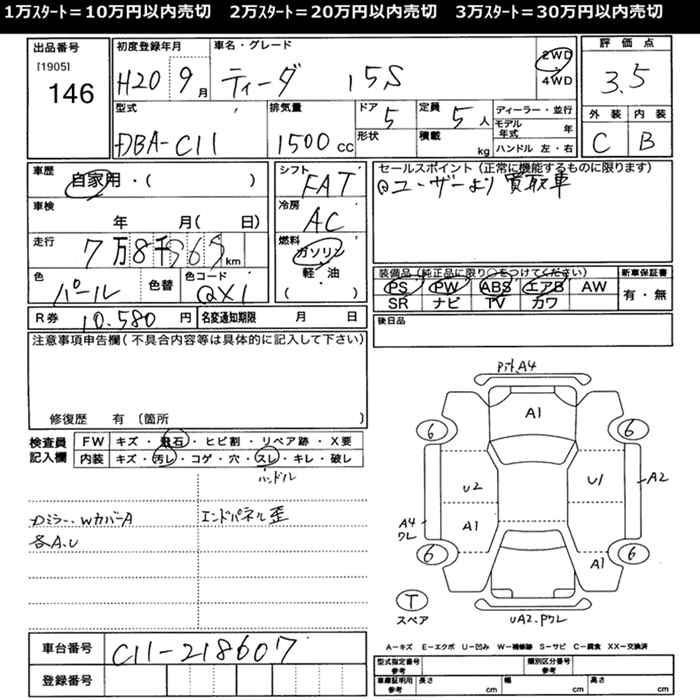 1万ｽﾀｰﾄ＝10万円以内売切　2万ｽﾀｰﾄ＝20万円以内売切　3万ｽﾀｰﾄ＝30万円以内売切
出品番号
[1905]
146
初度登録年月
H20 9月
車名・グレード
ティーダ 15S
2WD
4WD
評価点
3.5
外装 内装
C B
型式
DBA-C11
排気量
1500 cc
ドア 5
形状
定員 5人
積載 kg
ディーラー・並行
モデル年式 年
ハンドル 左・右
車歴
自家用・( )
車検
年 月( 日)
走行
7万8千565km
色
パール
色替
色コード
QX1
シフト
FAT
冷房
AC
燃料
ガソリン
軽油
( )
セールスポイント(正常に機能するものに限ります)
@ユーザーより買取車
装備品(純正品に限り○をつけてください)
PS PW ABS エアB AW
SR ナビ TV カワ
新車保証書
有・無
R券 10.580 円
名変通知期限 月 日
後日品
注意事項申告欄(不具合内容等は具体的に記入して下さい)
修復歴 有 [箇所 ]
検査員
記入欄
FW キズ・飛石・ヒビ割・リペア跡・X要
内装 キズ・汚レ・コゲ・穴・スレ・キレ・破レ
ハンドル
Dミラー、WカバーA
エンドパネル歪
各A.U
PﾅﾄA4
A1
6
6
U2
U1
A2
A4
ワレ
A1
A1
6
6
T
スペア
UA2.Pワレ
車台番号 C11-218607
登録番号
A－キズ E－エクボ U－凹み W－補修跡 S－サビ C－腐食 XX－交換済
型式指定番号
参考
類別区分番号
参考
車庫証明用
参考
長さ cm
幅 cm
高さ cm